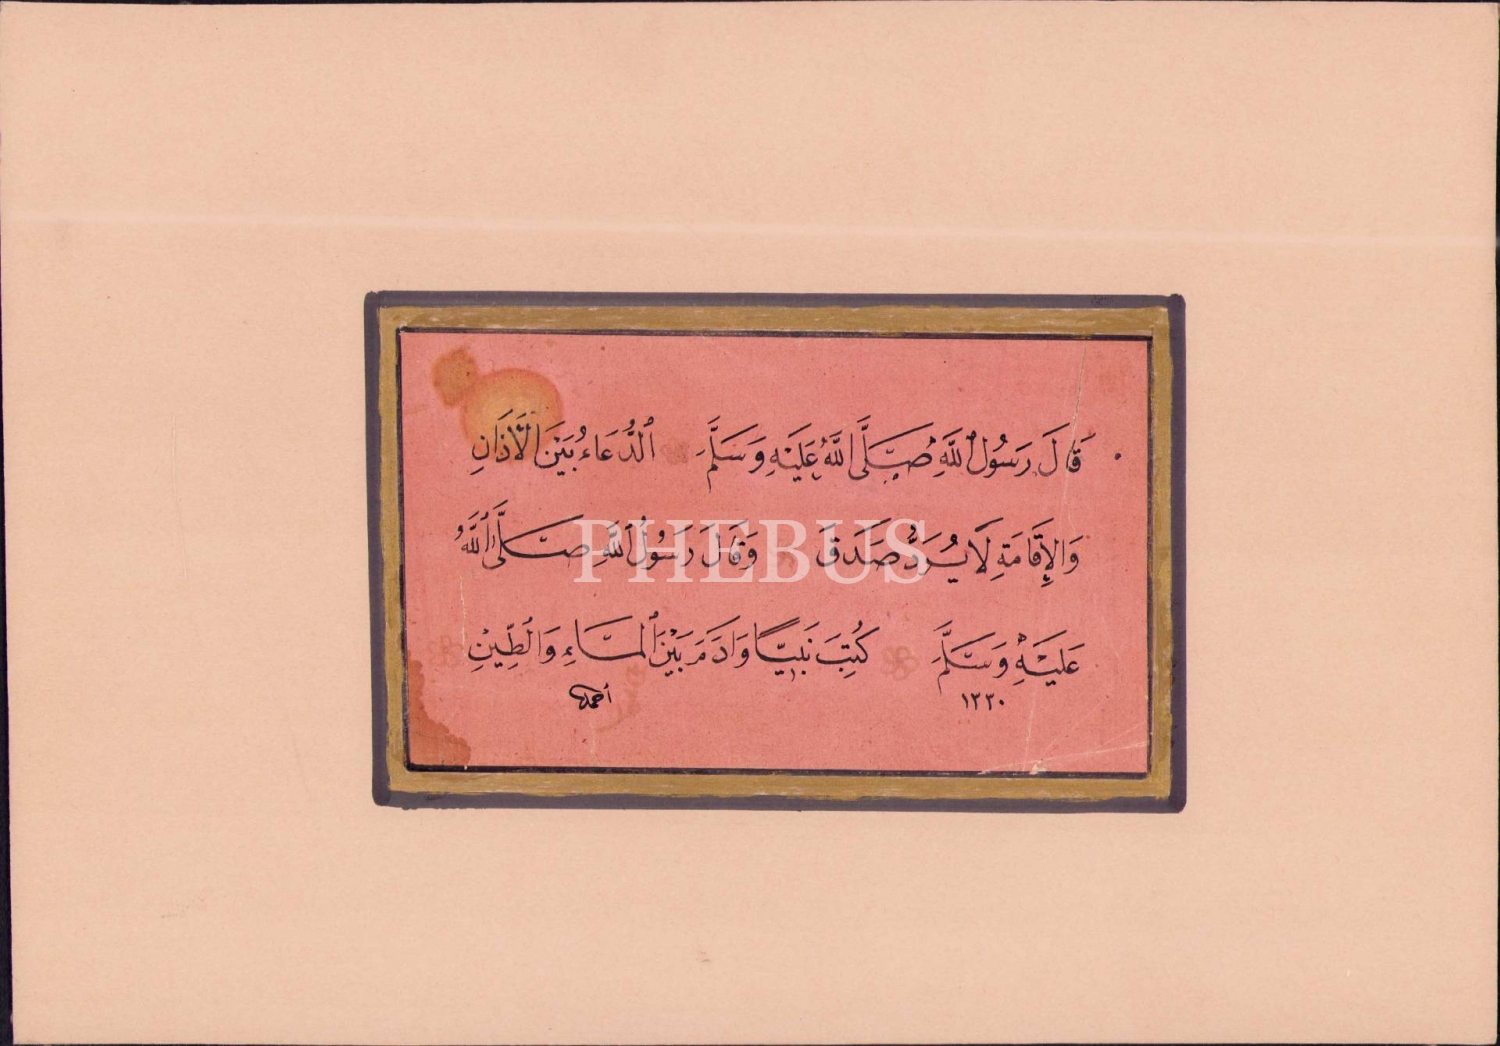 قَالَ رَسُولُ اللّٰهِ صَلَّى اللّٰهُ عَلَيْهِ وَسَلَّمَ الدُّعَاءُ بَيْنَ الْأَذَانِ
وَالْإِقَامَةِ لَا يُرَدُّ صَدَقَ وَقَالَ رَسُولُ اللّٰهِ صَلَّى اللّٰهُ
عَلَيْهِ وَسَلَّمَ كُتِبَ نَبِيًّا وَآدَمَ بَيْنَ الْمَاءِ وَالطِّينِ
١٣٣٠ أحمد
PHEBUS